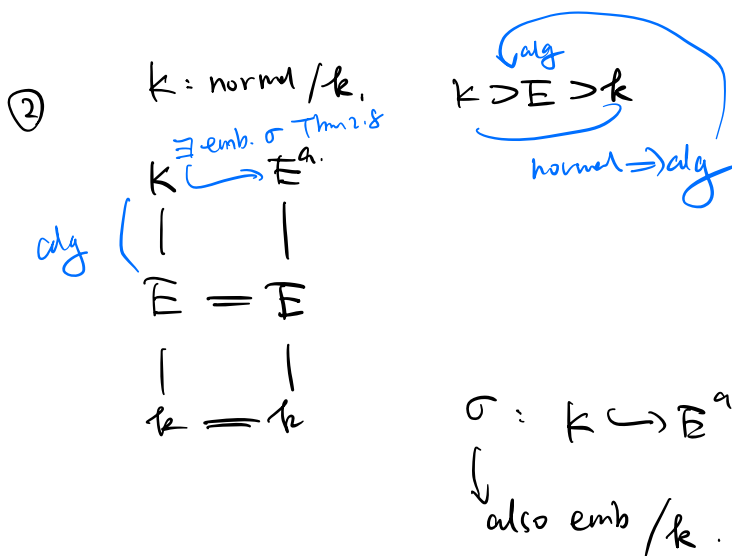 ②
K : normal / k.
K ⊃ E ⊃ k
alg
normal ⇒ alg
∃ emb. σ Thm 2.8
K ↪ Eᵃ.
alg
E = E
k = k
σ : K ↪ Eᵃ
also emb / k .